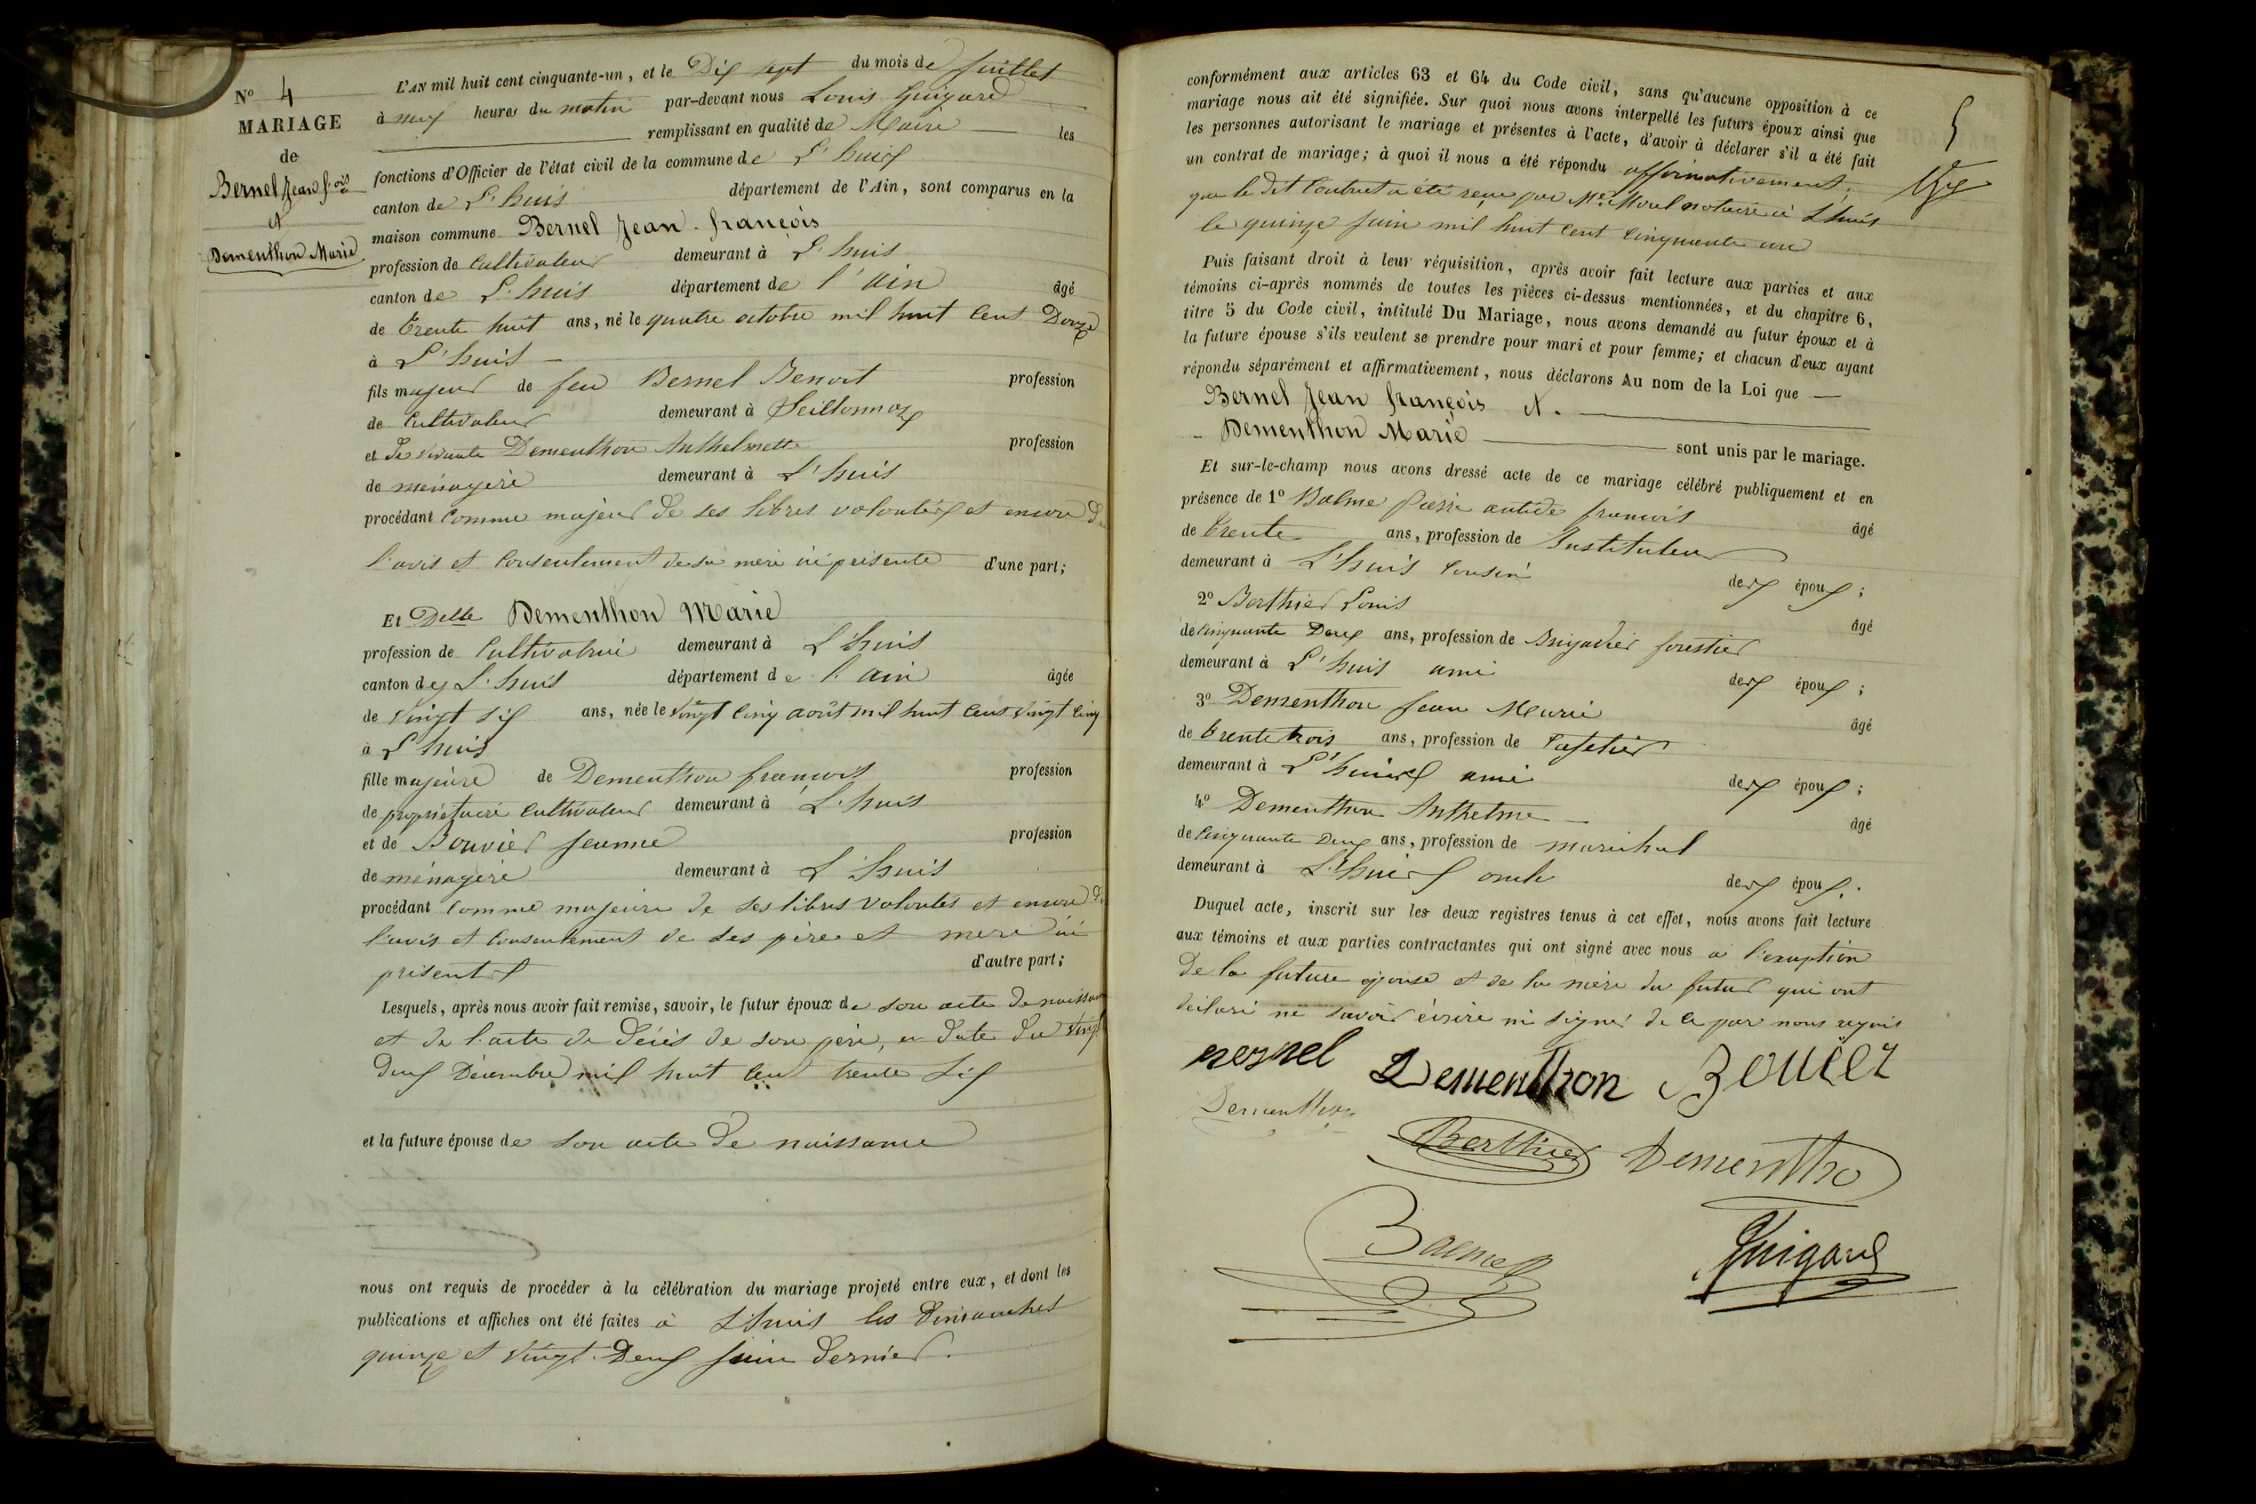 N° 4
MARIAGE
de
Bernel Jean f.ois
et
Dementhon Marie
L'AN mil huit cent cinquante-un, et le Dix sept du mois de juillet
à neuf heures du matin par-devant nous Louis Guigard
remplissant en qualité de Maire les
fonctions d'Officier de l'état civil de la commune de L'huis
canton de L'huis département de l'Ain, sont comparus en la
maison commune Bernel Jean françois
profession de Cultivateur demeurant à L'huis
canton de L'huis département de l'ain âgé
de trente huit ans, né le quatre octobre mil huit cent Douze
à L'huis
fils majeur de feu Bernel Benoit profession
de Cultivateur demeurant à Seillonnaz
et de vivante Dementhon Anthelmette profession
de ménagère demeurant à L'huis
procédant comme majeur de ses libres volontés et encore de
l'avis et consentement de sa mère ici présente d'une part;
Et Delle Dementhon Marie
profession de Cultivatrice demeurant à L'huis
canton de L'huis département de l'ain âgée
de vingt six ans, née le vingt cinq août mil huit cent vingt cinq
à L'huis
fille majeure de Dementhon françois profession
de propriétaire cultivateur demeurant à L'huis
et de Bouvier jeanne profession
de ménagère demeurant à L'huis
procédant comme majeure de ses libres volontés et encore de
l'avis et consentement de ses père et mère ici
présents d'autre part;
Lesquels, après nous avoir fait remise, savoir, le futur époux de son acte de naissance
et de l'acte de décès de son père, en date du vingt
deux Décembre mil huit cent trente six
et la future épouse de son acte de naissance
nous ont requis de procéder à la célébration du mariage projeté entre eux, et dont les
publications et affiches ont été faites à L'huis les dimanches
quinze et vingt-Deux juin dernier.
5
conformément aux articles 63 et 64 du Code civil, sans qu'aucune opposition à ce
mariage nous ait été signifiée. Sur quoi nous avons interpellé les futurs époux ainsi que
les personnes autorisant le mariage et présentes à l'acte, d'avoir à déclarer s'il a été fait
un contrat de mariage; à quoi il nous a été répondu affirmativement,
que le dit Contrat a été reçu par Me. Morel notaire à L'huis
le quinze juin mil huit cent cinquante un
Puis faisant droit à leur réquisition, après avoir fait lecture aux parties et aux
témoins ci-après nommés de toutes les pièces ci-dessus mentionnées, et du chapitre 6,
titre 5 du Code civil, intitulé Du Mariage, nous avons demandé au futur époux et à
la future épouse s'ils veulent se prendre pour mari et pour femme; et chacun d'eux ayant
répondu séparément et affirmativement, nous déclarons Au nom de la Loi que
Bernel Jean françois et.
Dementhon Marie sont unis par le mariage.
Et sur-le-champ nous avons dressé acte de ce mariage célébré publiquement et en
présence de 1° Balme antide françois âgé
de trente ans, profession de Instituteur
demeurant à L'huis Cousin des époux;
2° Berthier Louis âgé
de cinquante Deux ans, profession de Brigadier forestier
demeurant à L'huis ami des époux;
3° Dementhon Jean Marie âgé
de trente trois ans, profession de Cafetier
demeurant à L'huis ami des époux;
4° Dementhon Anthelme âgé
de cinquante Deux ans, profession de maréchal
demeurant à L'huis oncle des époux.
Duquel acte, inscrit sur les deux registres tenus à cet effet, nous avons fait lecture
aux témoins et aux parties contractantes qui ont signé avec nous à l'exception
de la future épouse et de la mère du futur qui ont
déclaré ne savoir écrire ni signer de ce par nous requis
Bernel Dementhon Bouvier
Dementhon
Berthier Dementho
Balme
Guigard